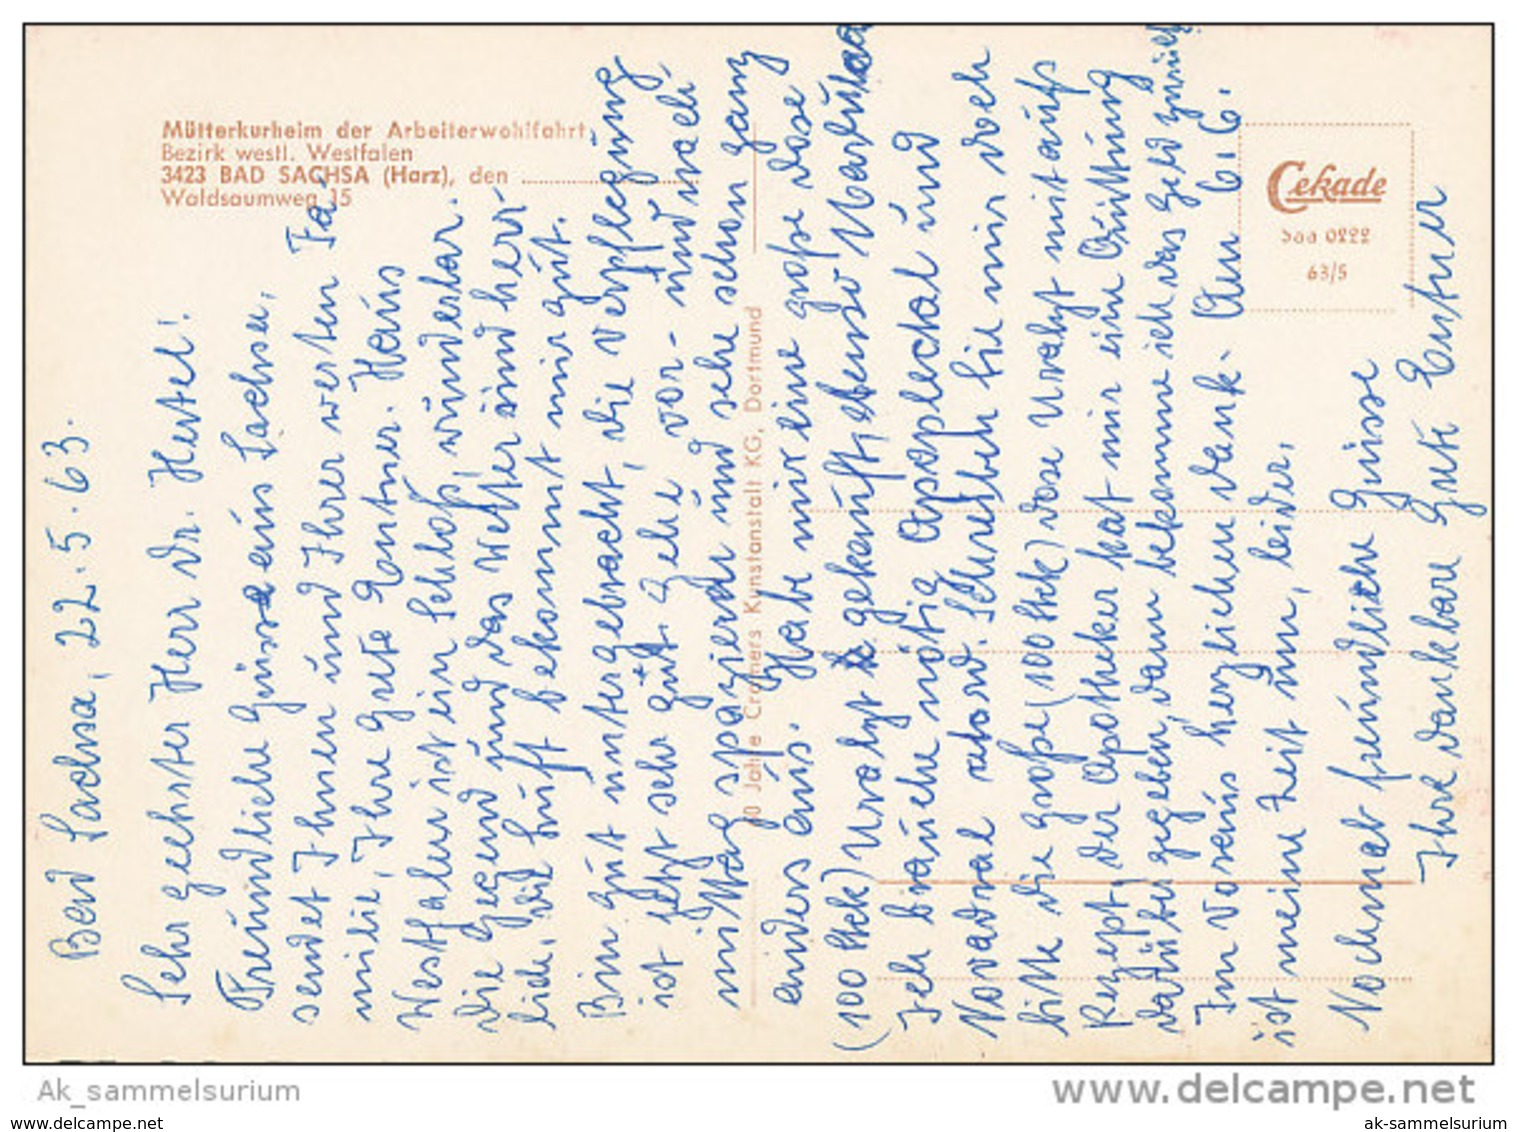 Mütterkurheim der Arbeiterwohlfahrt
Bezirk westl. Westfalen
3423 BAD SACHSA (Harz), den
Waldsaumweg 15
Cekade
saa 0222
63/5
50 Jahre Cramers Kunstanstalt KG, Dortmund
Bad Sachsa, 22.5.63.
Sehr geehrter Herr Dr. Hertel!
Freundliche Grüsse aus Sachsa,
sendet Ihnen und Ihrer werten Fa-
milie, Ihre Grete Hans
Westfalen ist ein Schloß, wunderbar.
Die Gegend und das Wetter sind herr-
lich, die Luft bekommt mir gut.
Bin gut untergebracht, die Verpflegung
ist jetzt sehr gut. Gehe vor- und nach-
mittag spazieren und sehe schon ganz
anders aus. Habe mir eine große Dose
(100 Stck) Uralyt gekauft, ebenso
Ich brauche nötig und
Novadral Schreiben Sie mir doch
bitte die große (100 Stck) Dose Uralyt mit aufs
Rezept, der Apotheker hat mir eine Quittung
darüber gegeben, dann bekomme ich das Geld zurück
Im Voraus herzlichen Dank. Am 6.6.
ist meine Zeit um, leider.
Nochmal freundliche Grüsse
Ihre dankbare Grete
Ak_sammelsurium
www.delcampe.net
www.delcampe.net
ak-sammelsurium